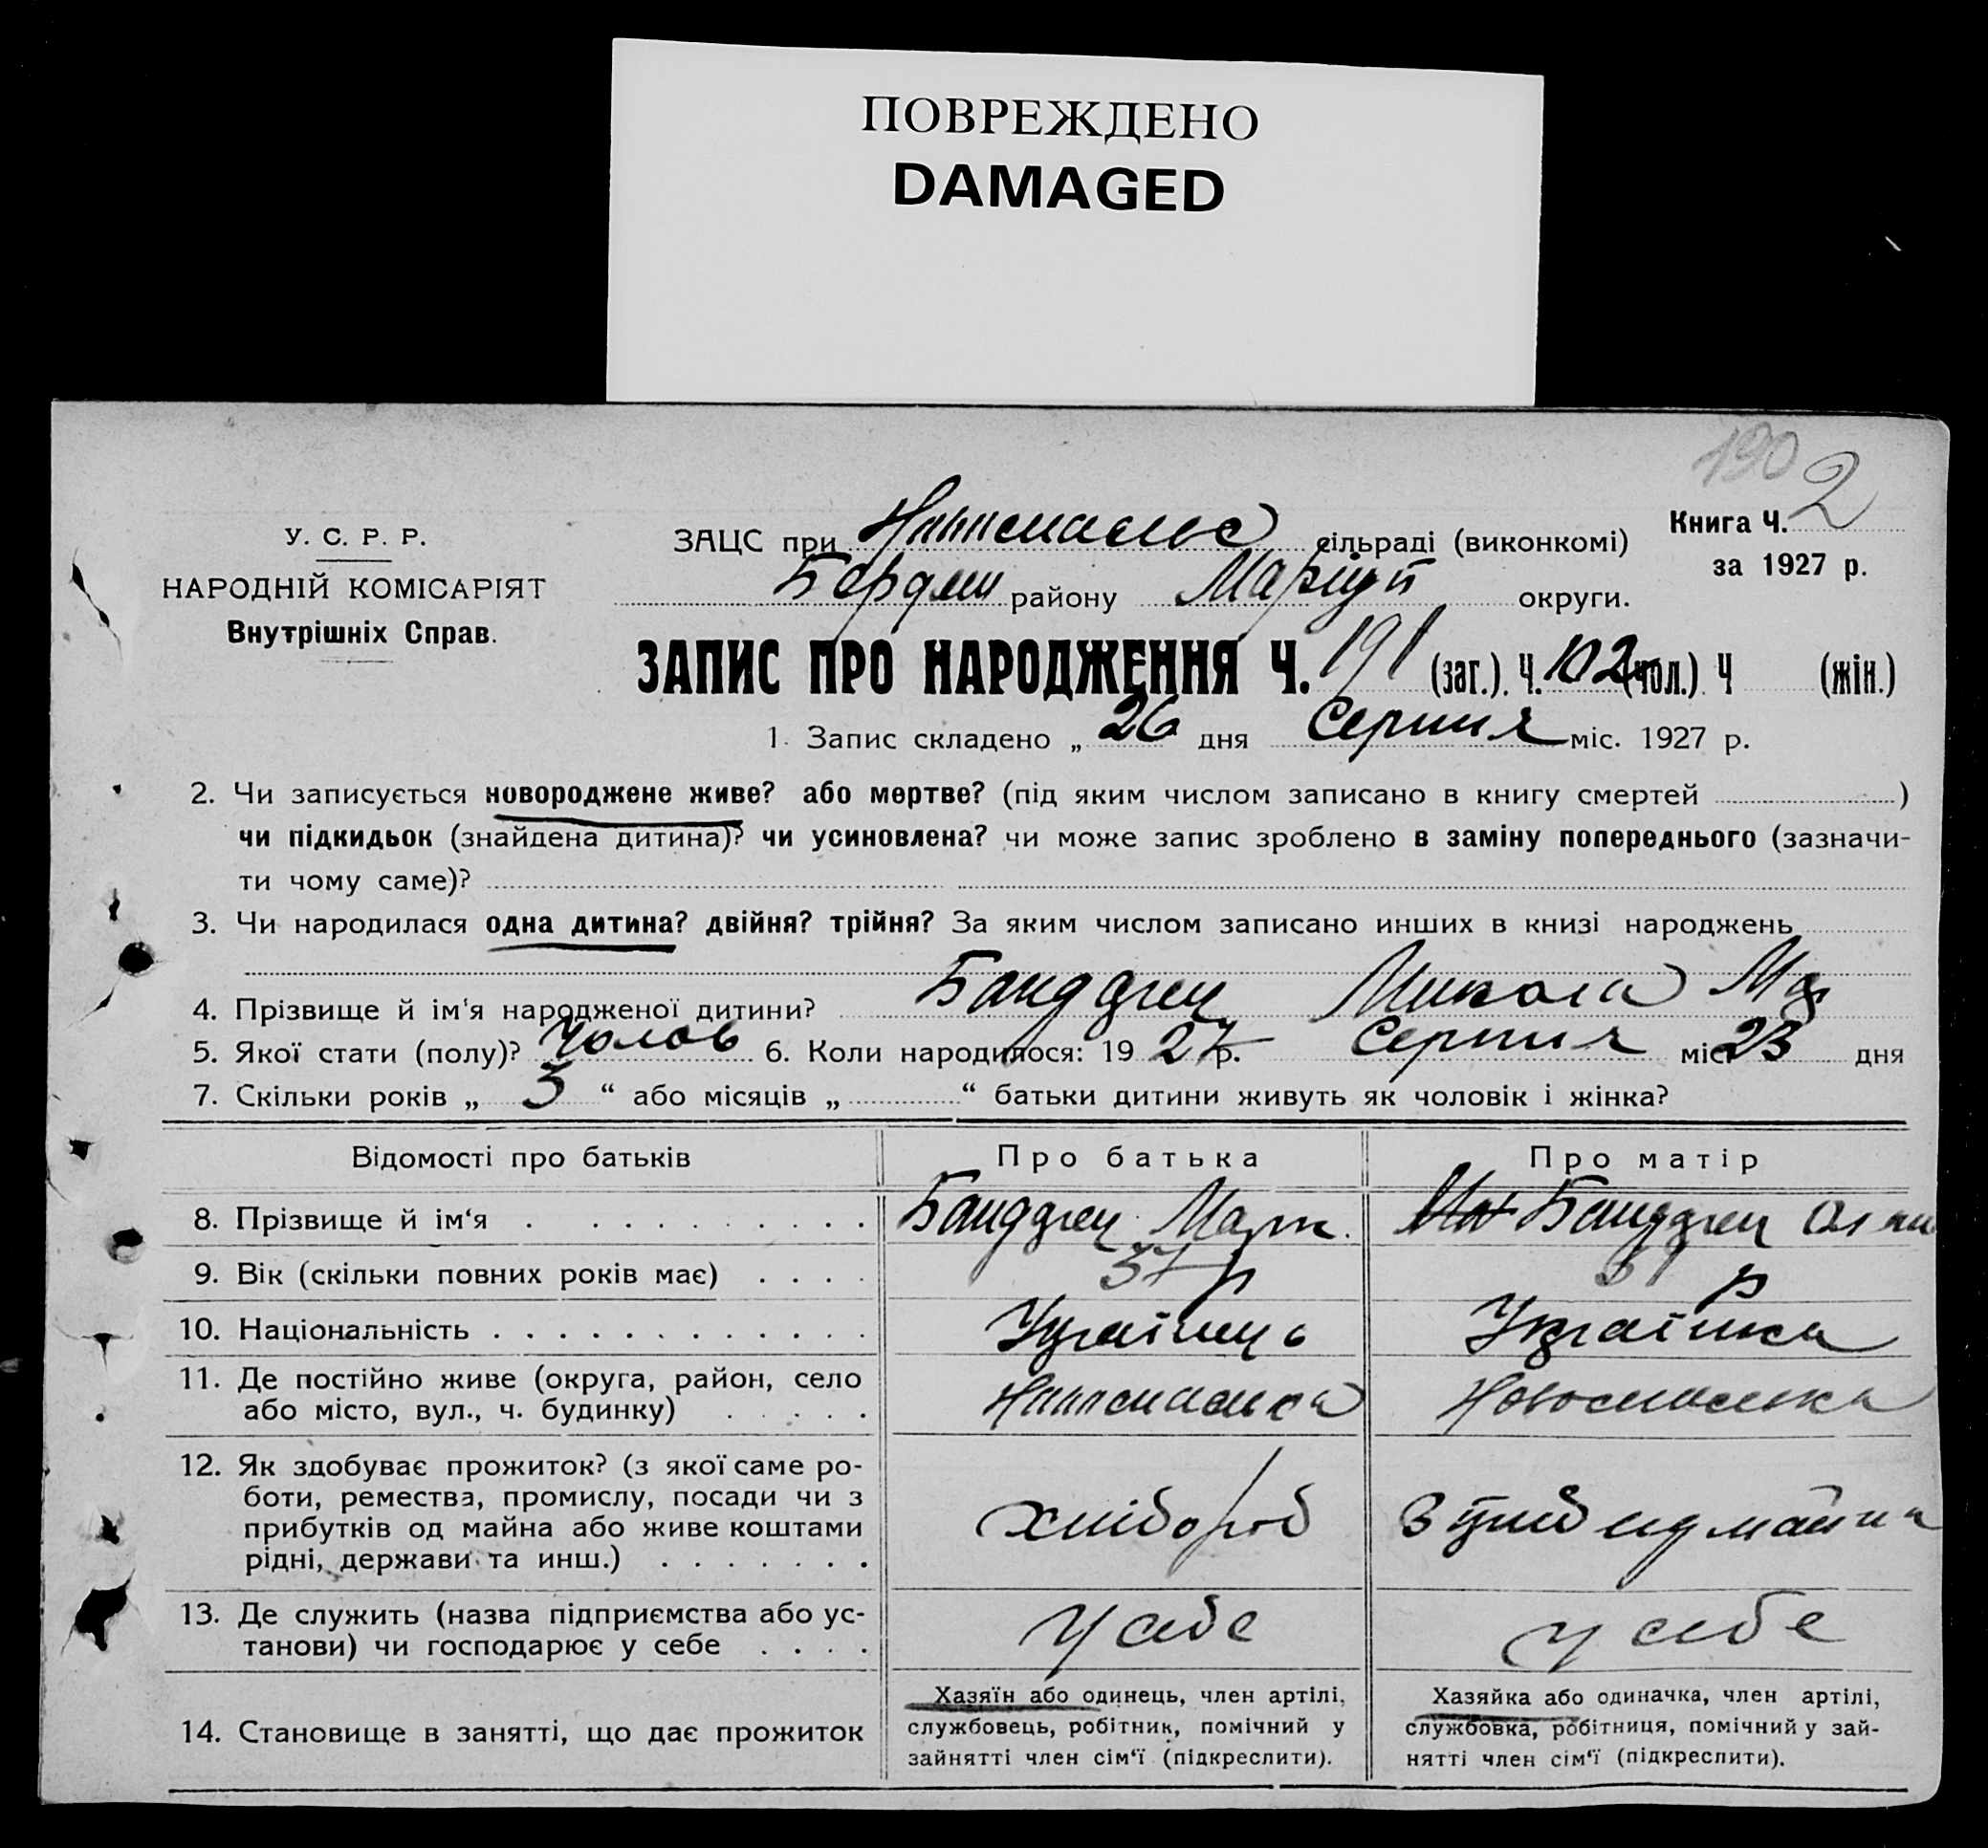 ПОВРЕЖДЕНО
DAMAGED
190 2
У. С. Р. Р.
НАРОДНІЙ КОМІСАРІЯТ
Внутрішніх Справ.
ЗАЦС при сільраді (виконкомі)
Книга Ч. 2
за 1927 р.
Бердян району Маріуп округи.
ЗАПИС ПРО НАРОДЖЕННЯ Ч. 191 (заг.). Ч. 102 (чол.) Ч (жін.)
1. Запис складено „ 26 дня Серпня міс. 1927 р.
2. Чи записується новороджене живе? або мертве? (під яким числом записано в книгу смертей )
чи підкидьок (знайдена дитина)? чи усиновлена? чи може запис зроблено в заміну попереднього (зазначи-
ти чому саме)?
3. Чи народилася одна дитина? двійня? трійня? За яким числом записано инших в книзі народжень
4. Прізвище й ім'я народженої дитини? Микола
5. Якої стати (полу)? Чолов 6. Коли народилося: 19 27 р. Серпня міс. 23 дня
7. Скільки років „ 3 “ або місяців „ “ батьки дитини живуть як чоловік і жінка?
Відомості про батьків Про батька Про матір
8. Прізвище й ім‘я
9. Вік (скільки повних років має) 37 р р
10. Національність Українець Українка
11. Де постійно живе (округа, район, село
або місто, вул., ч. будинку) Новоспаська
12. Як здобуває прожиток? (з якої саме ро-
боти, ремества, промислу, посади чи з
прибутків од майна або живе коштами
рідні, держави та инш.) хлібороб
13. Де служить (назва підприємства або ус-
танови) чи господарює у себе у себе у себе
14. Становище в занятті, що дає прожиток
Хазяїн або одинець, член артілі,
службовець, робітник, помічний у
зайнятті член сім‘ї (підкреслити).
Хазяйка або одиначка, член артілі,
службовка, робітниця, помічний у зай-
нятті член сім‘ї (підкреслити).